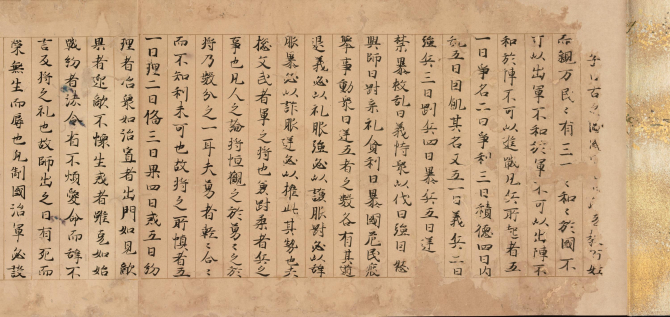 子曰古之圖國
而親万民々有三々和々於國不
可以出軍不和於軍不可以出陣不
和於陣不可以進戰凡兵所起者五
一曰争名二曰争利三曰積德四曰内
乱五曰因飢其名又五一曰義兵二曰
強兵三曰剛兵四曰暴兵五曰逆
禁暴救乱曰義恃衆以伐曰強因怒
興師曰剛棄礼貪利曰暴國危民疲
舉事動衆曰逆五者之數各有其道
退義必以礼服強必以謙服剛必以辞
服暴必以詐服逆必以權此其勢也夫
揔文武者軍之将也兼剛柔者兵之
事也凡人之論将恒觀之於勇々之於
将乃數分之一耳夫勇者輕々合々
而不知利未可也故将之所慎者五
一曰理二曰俻三曰果四曰戒五曰約
理者治衆如治寡者出門如見敵
果者臨敵不懐生戒者雖克如始
戰約者法令省不煩受命而辞不
言反将之礼也故師出之日有死而
榮無生而辱也凡制國治軍必設